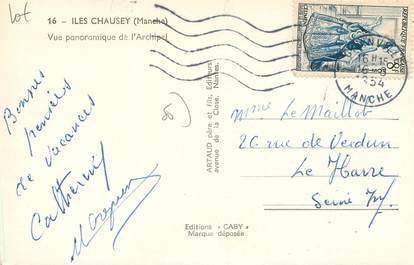 Lot
16 - ILES CHAUSEY (Manche)
Vue panoramique de l'Archipel
Bonnes
pensées
de vacances
Catherine
ARTAUD père et fils, Editeurs
avenue de la Close, Nantes.
Editions "GABY"
Marque déposée
MANCHE
1954
Mme Le Maillot
26 rue de Verdun
Le Havre
Seine Inf.